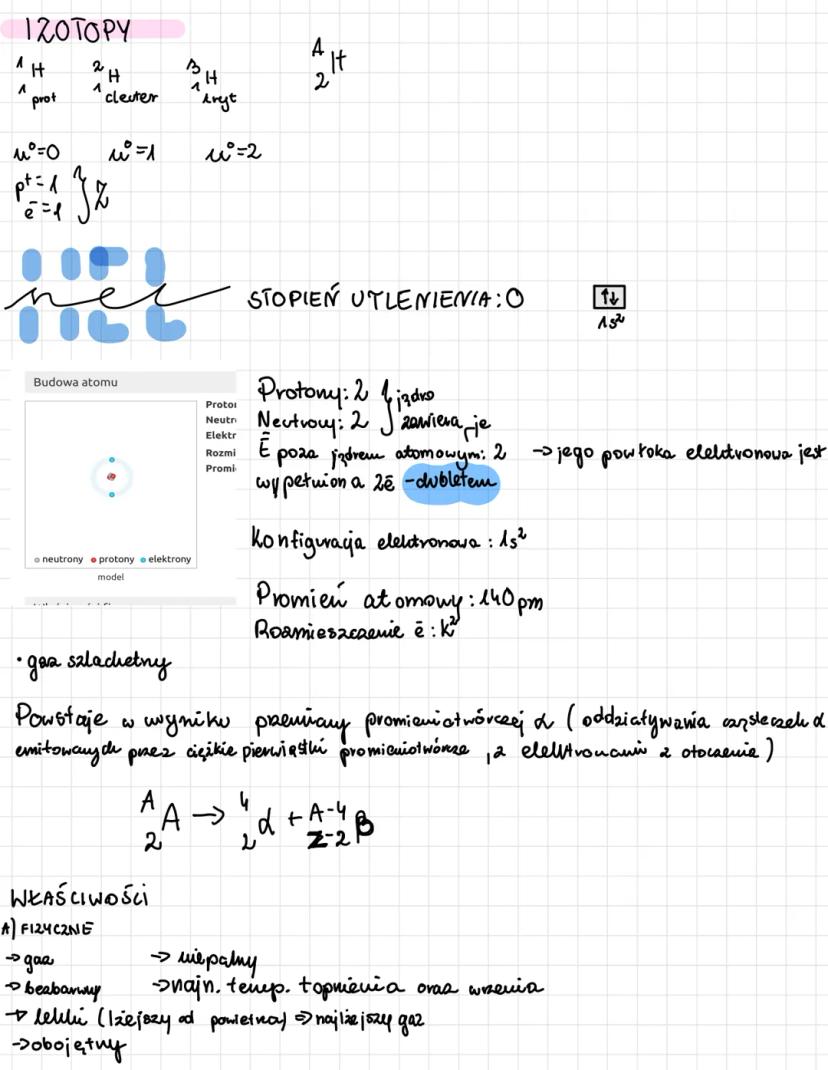 IZOTOPY
¹₁H prot ²₁H deuter ³₁H tryt ᴬ₂H
n⁰=0 n⁰=1 n⁰=2
p⁺=1
e⁻=1 } Z
hel STOPIEŃ UTLENIENIA: 0 ↑↓
1s²
Budowa atomu
Proto
Neutr
Elektr
Rozmi
Promi
neutrony protony elektrony
model
Protony: 2 } jądro
Neutrony: 2 } zawiera je
Ē poza jądrem atomowym: 2 → jego powłoka elektronowa jest
wypełniona 2ē - dubletem
Konfiguracja elektronowa: 1s²
Promień atomowy: 140 pm
Rozmieszczenie ē: K²
• gaz szlachetny
Powstaje w wyniku przemiany promieniotwórczej α (oddziaływania cząsteczek α
emitowanych przez ciężkie pierwiastki promieniotwórcze, z elektronami z otoczenia)
ᴬ₂A → ⁴₂α + ᴬ⁻⁴_Z-2 β
WŁAŚCIWOŚCI
A) FIZYCZNE
→ gaz → niepalny
→ bezbarwny → najn. temp. topnienia oraz wrzenia
→ lekki (lżejszy od powietrza) ⇒ najlżejszy gaz
→ obojętny